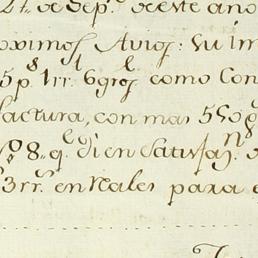 27. de Sep.e de este año
oximos Avios: su im
5 p.s 1 rr.l 6 gros como Con
factura, con mas 550 g
8.. q.e di en Satisfaz.n
3 rr.s en Reales para